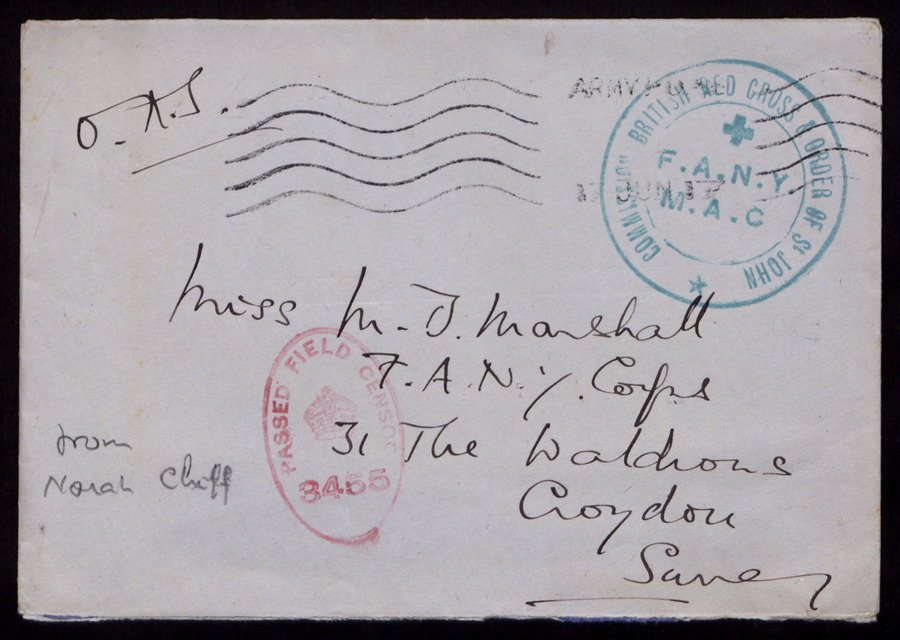 O.A.S.
ARMY P.
17 JUN 17
COMMISSION BRITISH RED CROSS & ORDER OF St JOHN
F.A.N.Y.
M.A.C
Miss M. J. Marshall
F.A.N.Y. Corps
31 The Waldrons
Croydon
Surrey
PASSED FIELD CENSOR
3455
from
Norah Cluff